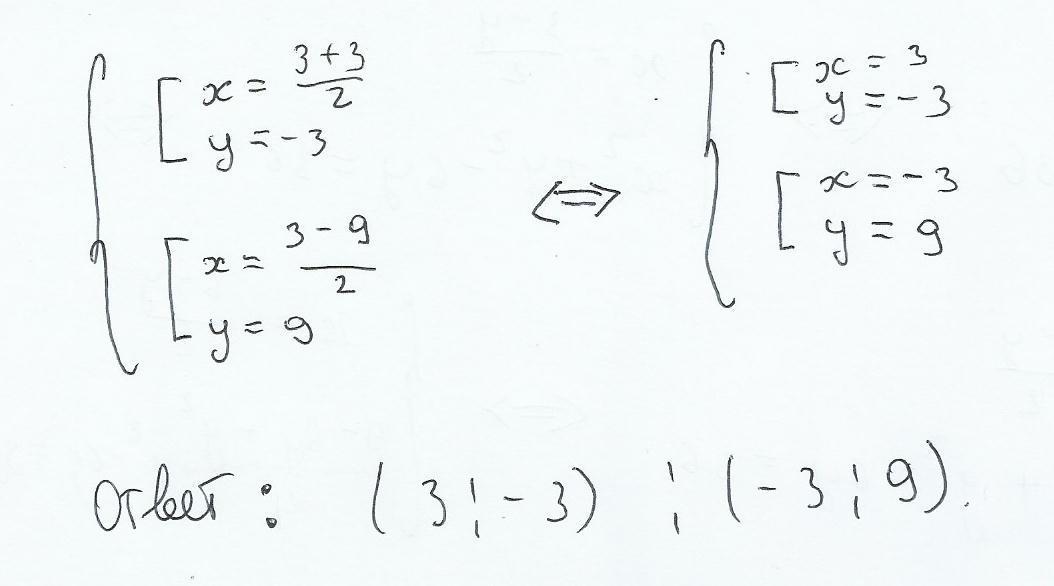 { [ x = (3+3)/2
y = -3
[ x = (3-9)/2
y = 9
⇔
{ [ x = 3
y = -3
[ x = -3
y = 9
Ответ: (3;-3) ; (-3;9).